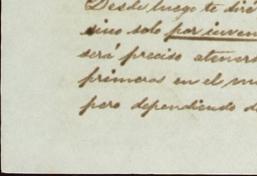 Desde luego te diré
sino solo por inven
será preciso atener
primeras en el m
pero dependiendo d